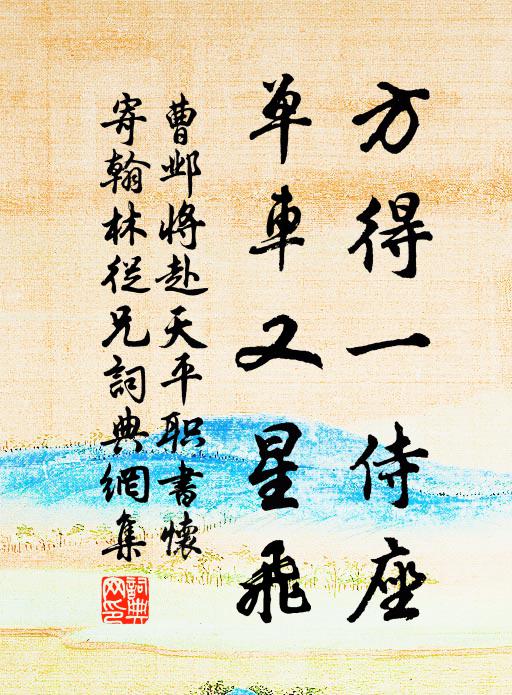 方得一侍座
單車又星飛
曹邺將赴天平职書懷
寄翰林從兄詞典網集